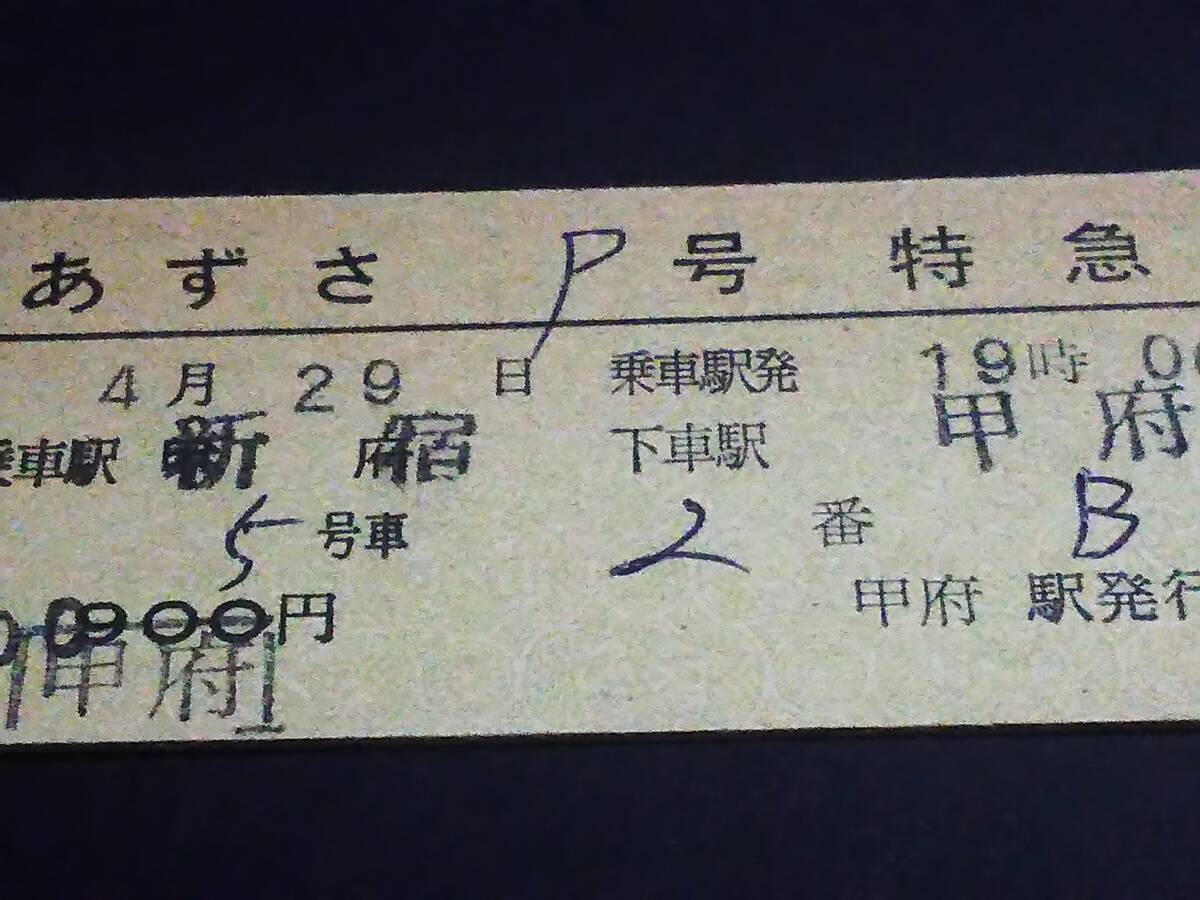 あずさ 号 特急
4月 29 日 乗車駅発 19時 00
乗車駅 新宿 下車駅 甲府
5 号車 2 番 B
00900円 甲府 駅発行
甲府